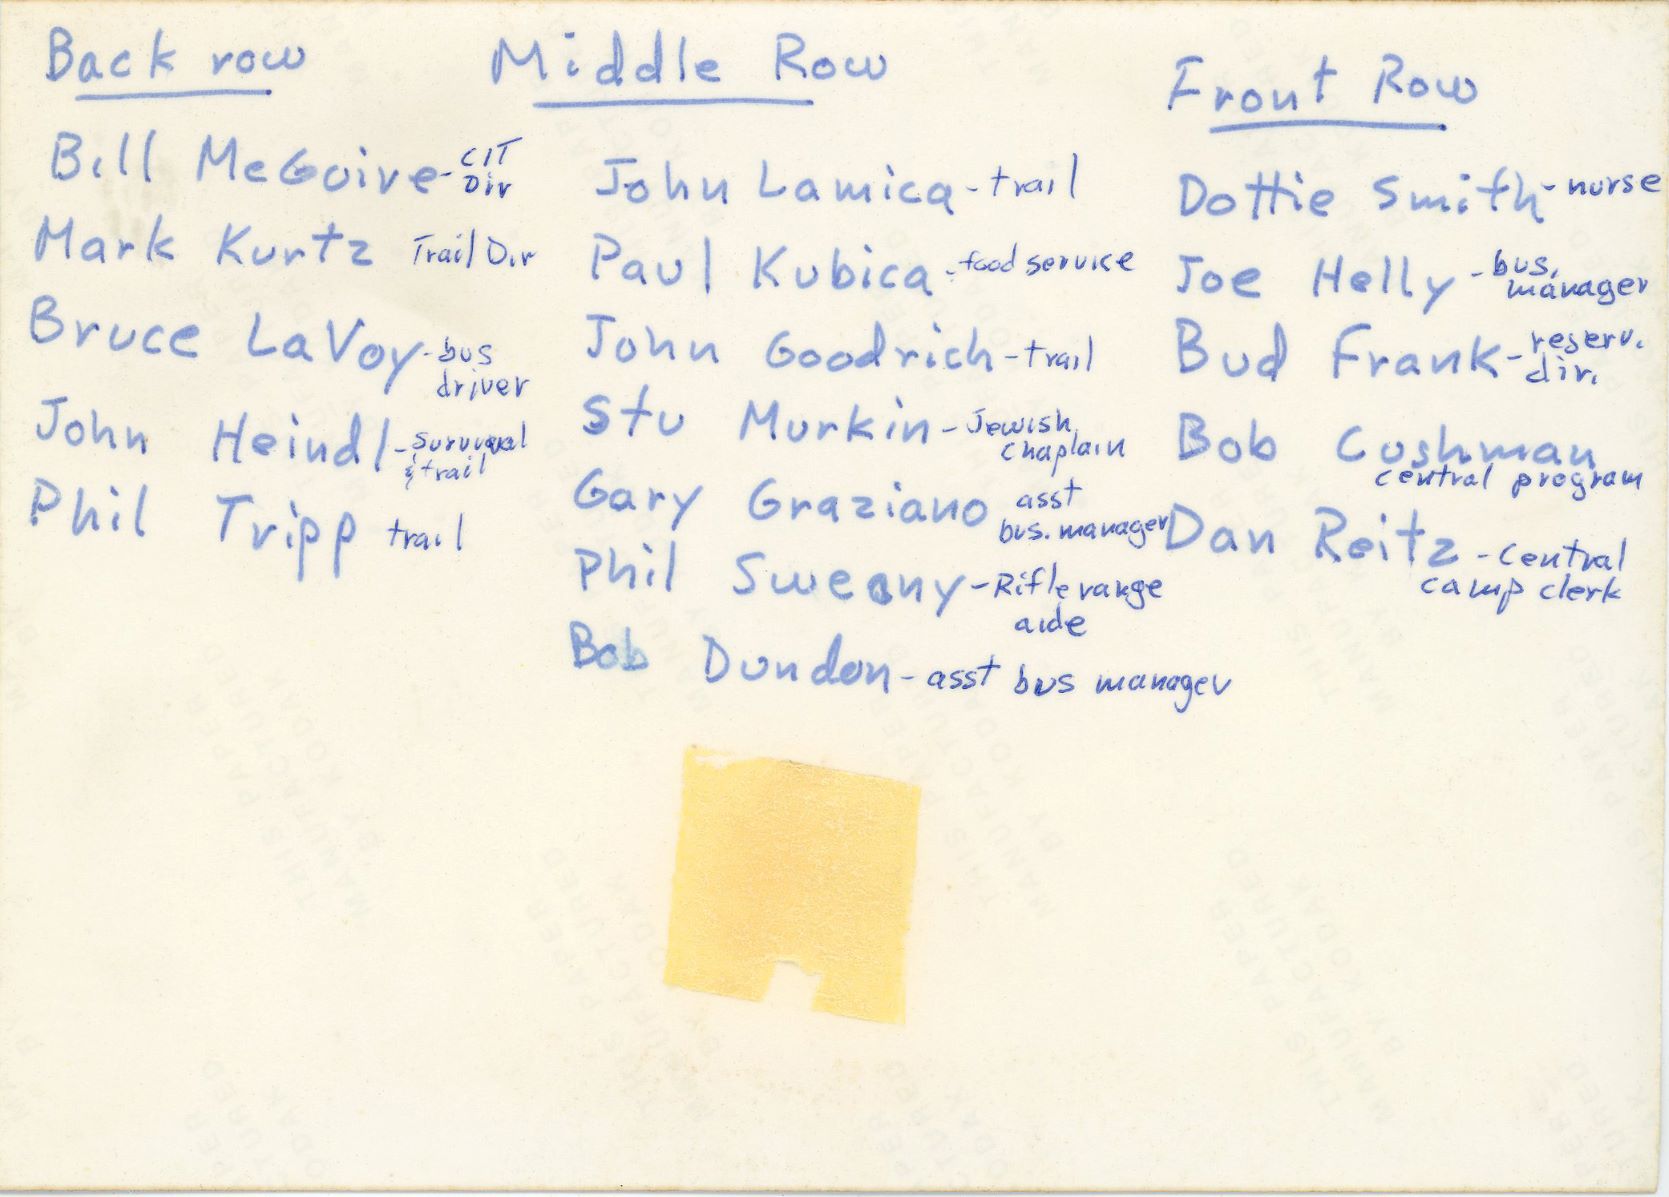 Back row
Bill McGuire - CIT
Dir
Mark Kurtz Trail Dir
Bruce LaVoy - bus
driver
John Heindl - Survival
& trail
Phil Tripp trail
Middle Row
John Lamica - trail
Paul Kubica - food service
John Goodrich - trail
Stu Murkin - Jewish
chaplain
Gary Graziano asst
bus. manager
Phil Sweeny - Rifle range
aide
Bob Dundon - asst bus manager
Front Row
Dottie Smith - nurse
Joe Helly - bus.
manager
Bud Frank - reserv.
dir.
Bob Cushman
central program
Dan Reitz - central
camp clerk
THIS PAPER
MANUFACTURED
BY KODAK